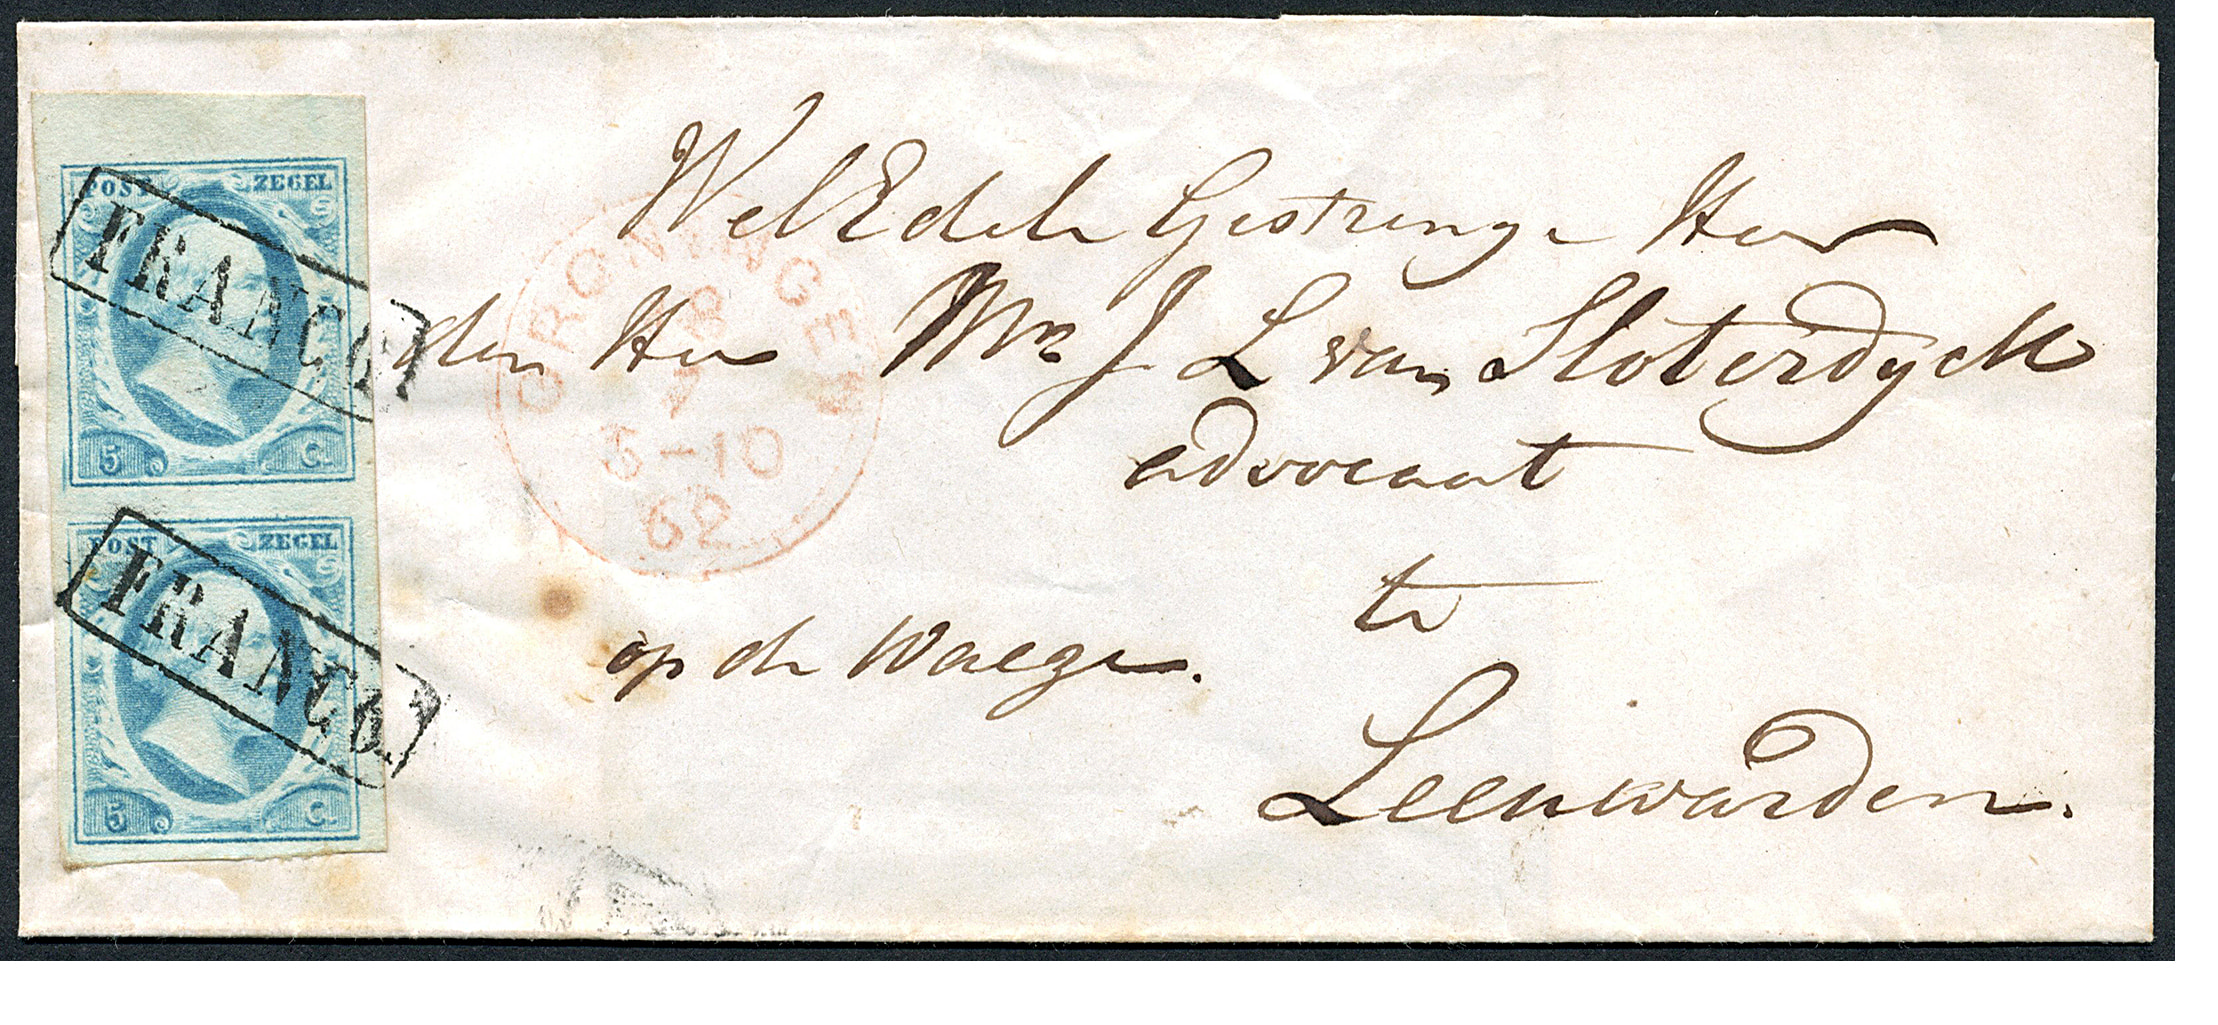 POST ZEGEL
FRANCO
5 C.
POST ZEGEL
FRANCO
5 C.
GRONINGEN
18
7
5-10
62
WelEdele Gestrenge Heer
den Heer Mr J L van Sloterdyck
advocaat
te
op de Waege.
Leeuwarden.